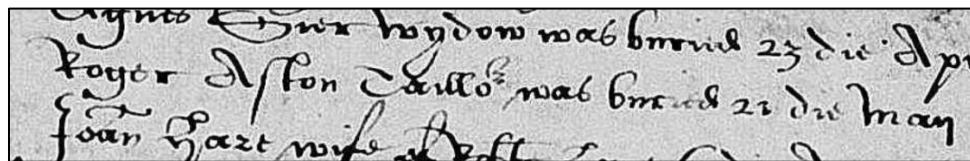 Agnes Gier wydow was buried 23 die Apr
Roger Aston Taillor was buried 21 die Maij
Joan Hare wife of Robt